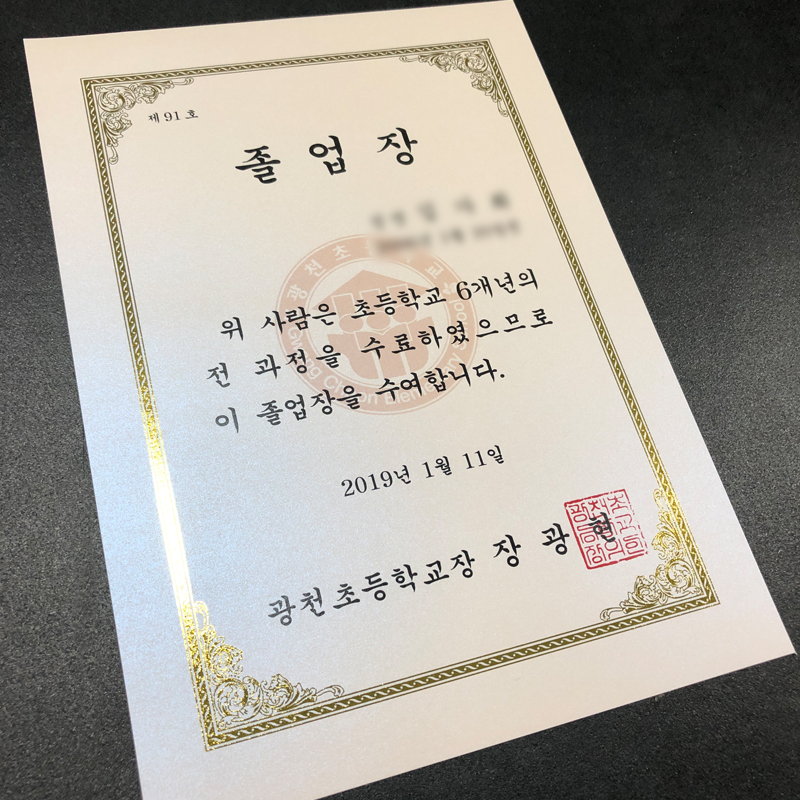 제 91 호
졸 업 장
광천초등학교
위 사람은 초등학교 6개년의
전 과정을 수료하였으므로
이 졸업장을 수여합니다.
2019년 1월 11일
광천초등학교장 장 광 현